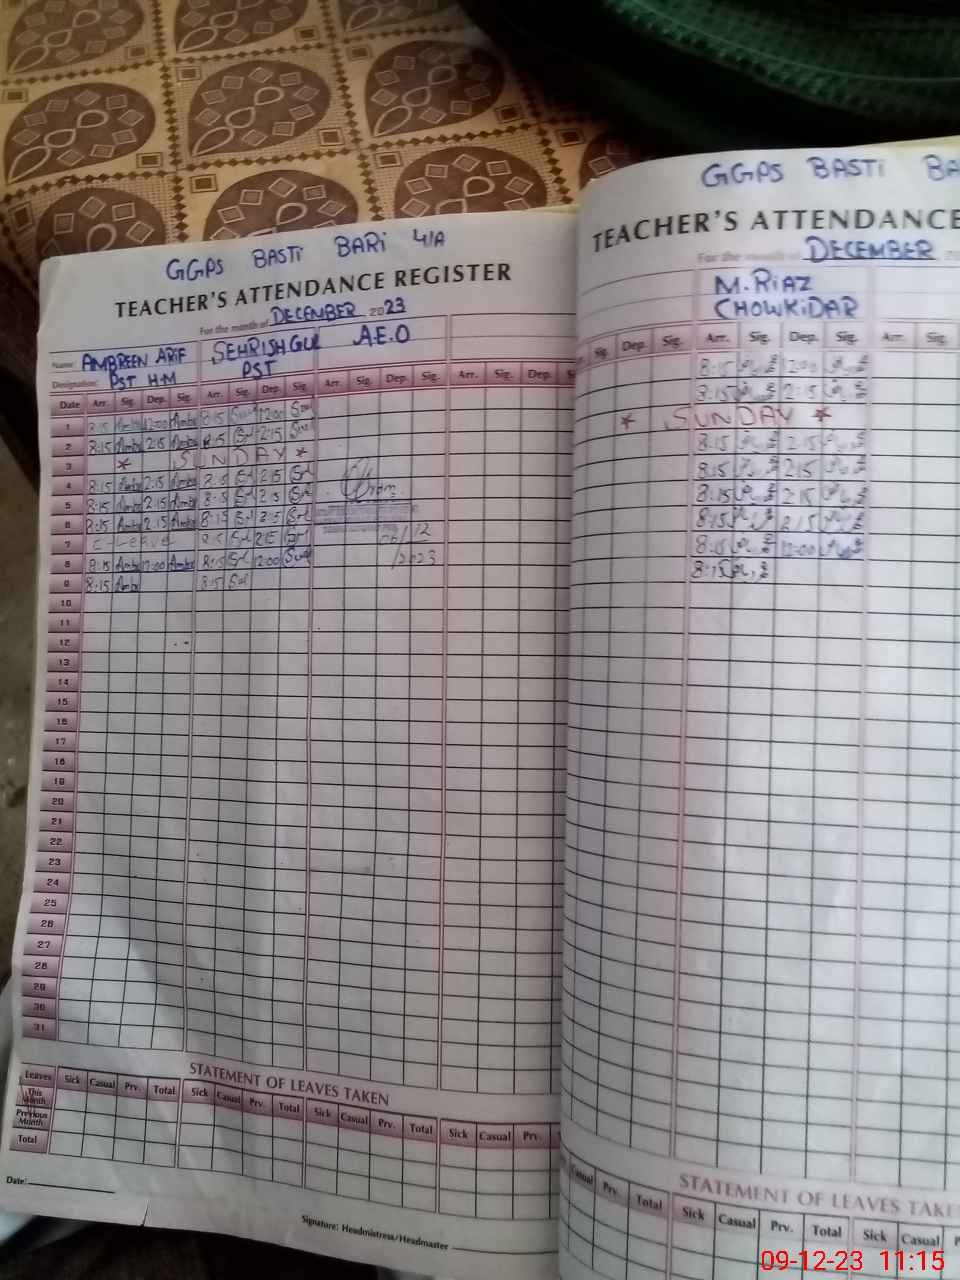 GGPS BASTI BARI 4/A
TEACHER'S ATTENDANCE REGISTER
For the month of DECEMBER 2023
Name: AMBREEN ARIF SEHRISH GUL A.E.O
Designation: PST H.M PST
Date Arr. Sig. Dep. Sig. Arr. Sig. Dep. Sig. Arr. Sig. Dep. Sig. Arr. Sig. Dep.
1 8:15 12:00 8:15 12:00
2 8:15 2:15 8:15 2:15
3 * SUNDAY *
4 8:15 2:15 8:15 2:15
5 8:15 2:15 8:15 2:15
6 8:15 2:15 8:15 2:15
7 E-Leave 8:15 2:15
06/12
8 8:15 12:00 8:15 12:00
/2023
9 8:15 8:15
10
11
12
13
14
15
16
17
18
19
20
21
22
23
24
25
26
27
28
29
30
31
STATEMENT OF LEAVES TAKEN
Leaves Sick Casual Prv. Total Sick Casual Prv. Total Sick Casual Prv. Total Sick Casual Prv.
This Month
Previous Month
Total
Date:
Signature: Headmistress/Headmaster
GGPS BASTI BA
TEACHER'S ATTENDANCE
For the month of DECEMBER 20
M.RIAZ
CHOWKIDAR
Sig. Dep. Sig. Arr. Sig. Dep. Sig. Arr. Sig.
8:15 12:00
8:15 2:15
* SUNDAY *
8:15 2:15
8:15 2:15
8:15 2:15
8:15 2:15
8:15 12:00
8:15
STATEMENT OF LEAVES TAKE
Casual Prv. Total Sick Casual Prv. Total Sick Casual
09-12-23 11:15